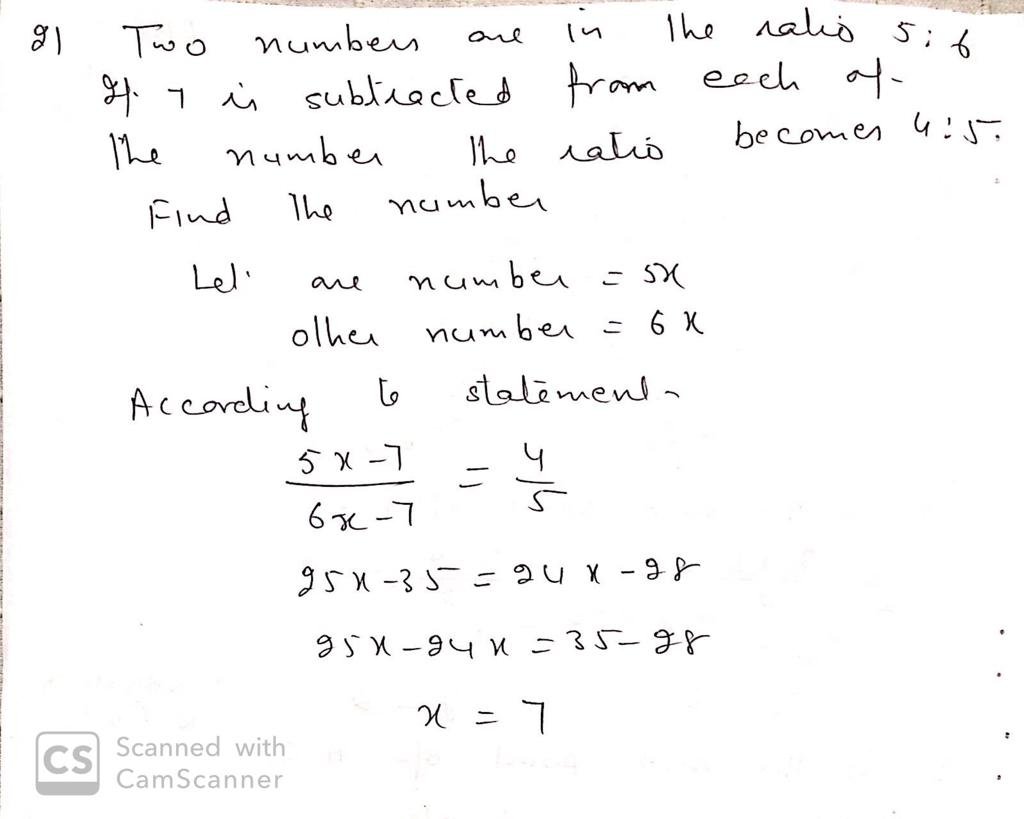 21 Two numbers are in the ratio 5:6
If 7 is subtracted from each of
the number the ratio becomes 4:5.
Find the number
Let one number = 5x
other number = 6x
According to statement
5x-7 / 6x-7 = 4/5
25x-35 = 24x-28
25x-24x = 35-28
x = 7
CS Scanned with
CamScanner